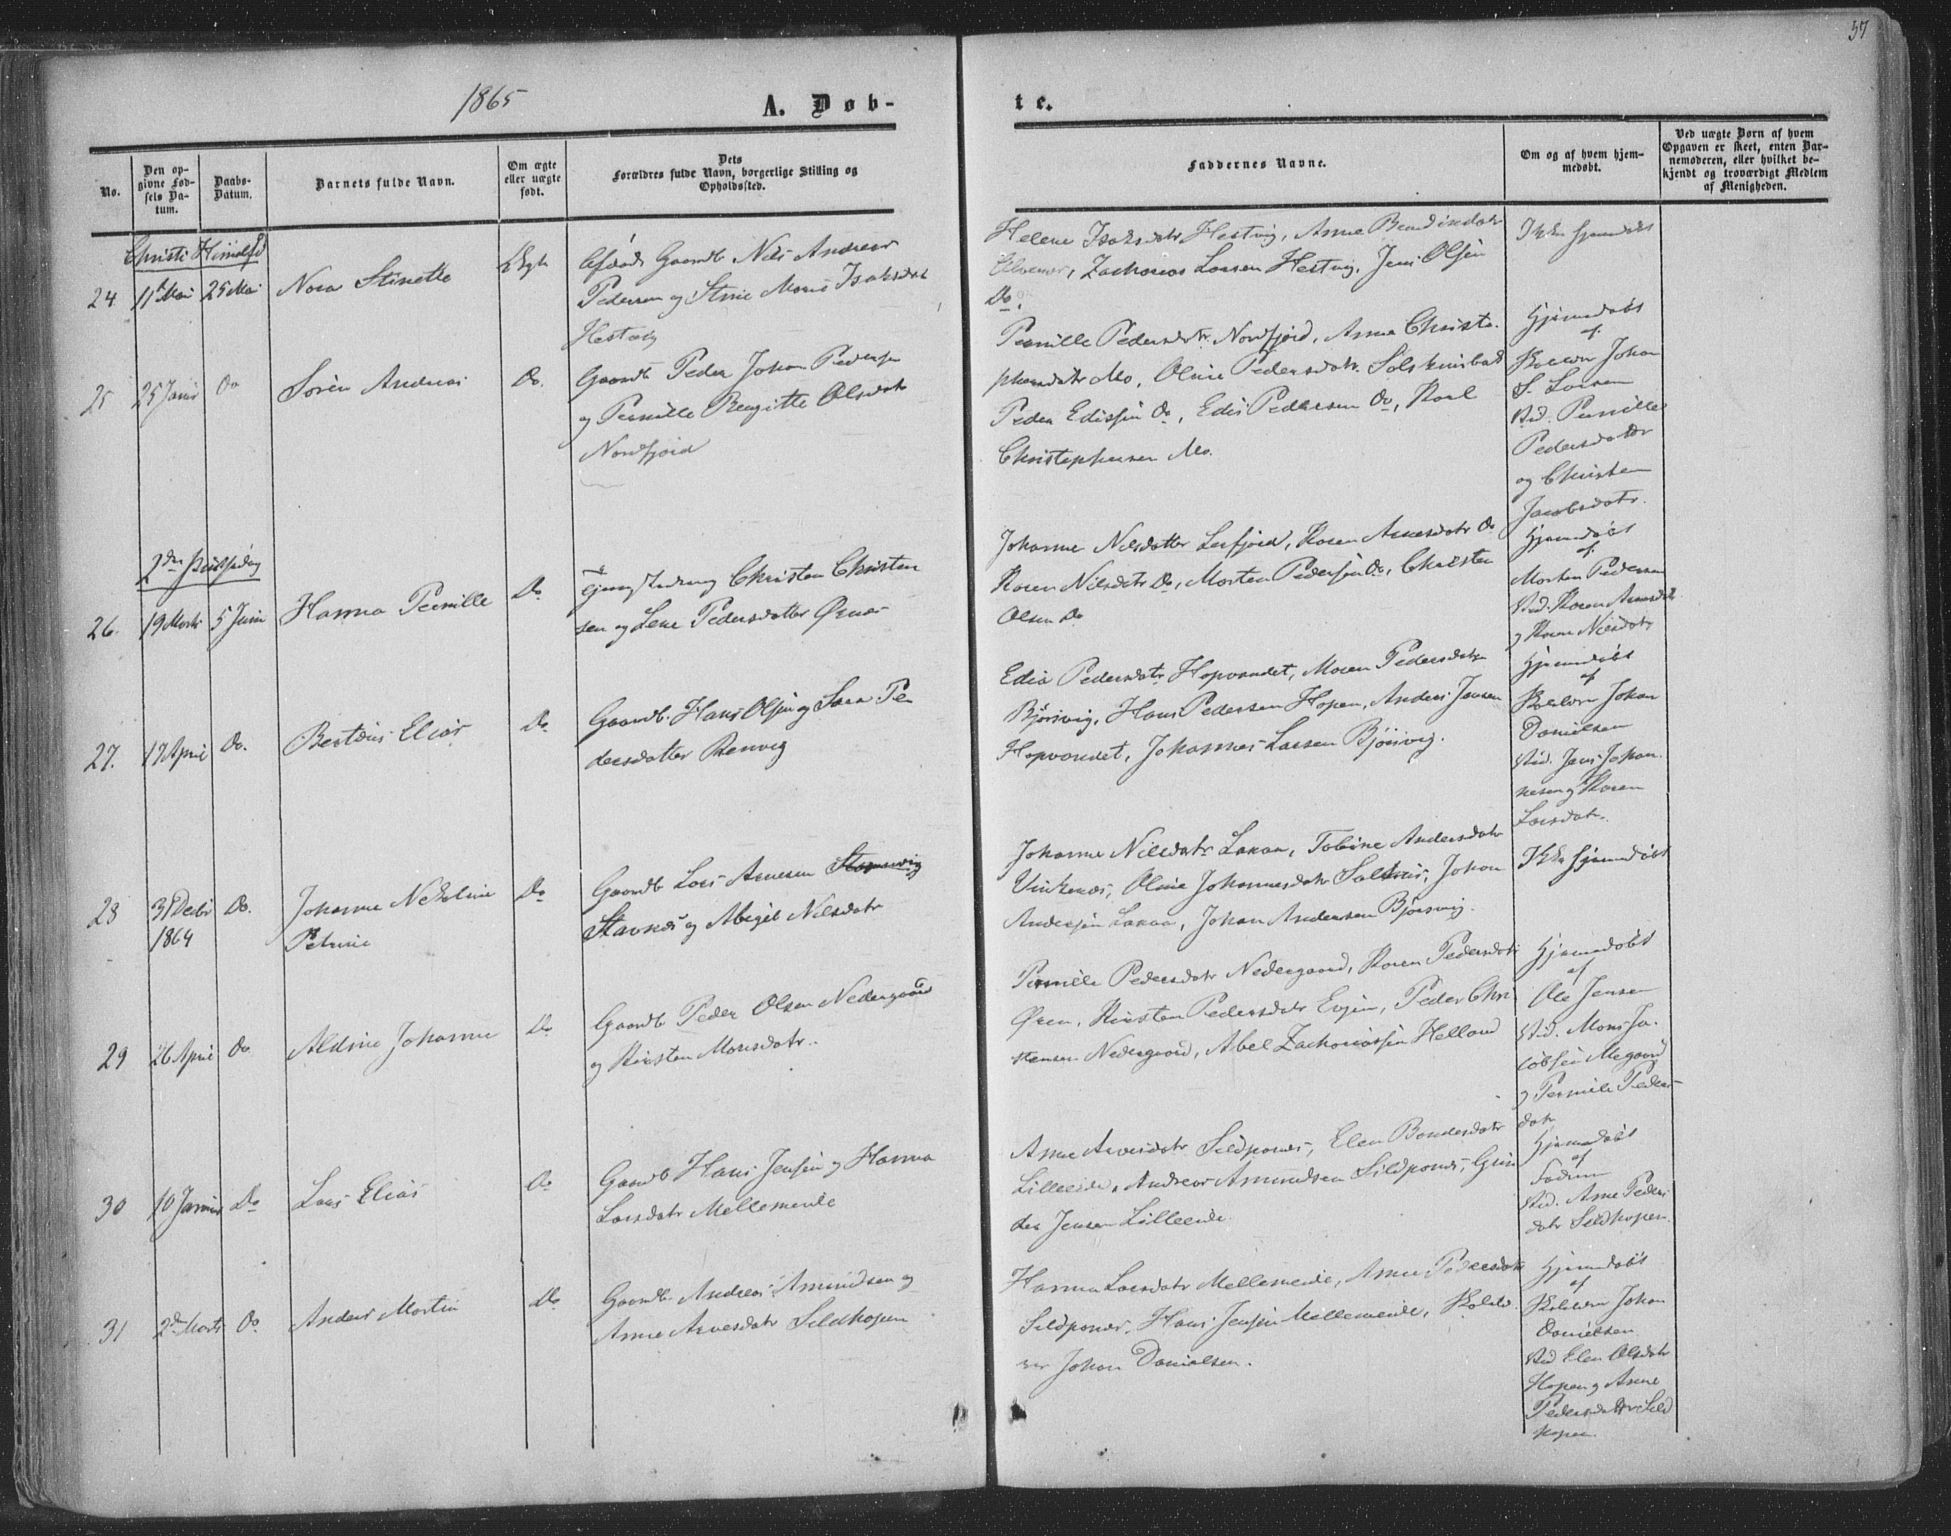 57
1865
A. Døb-
te.
No.
Den op-
givne Fød-
sels Da-
tum.
Daabs-
Datum.
Barnets fulde Navn.
Om ægte
eller uægte
født.
Dets
Forældres fulde Navn, borgerlige Stilling og
Opholdssted.
Faddernes Navne.
Om og af hvem hjem-
medøbt.
Ved uægte Børn af hvem
Opgaven er skeet, enten Bar-
nemoderen, eller hvilket be-
kjendt og troværdigt Medlem
af Menigheden.
Christi Himelfd
24 11te Mai 25 Mai Nora Stinette Ægte
Gaardb Nils Andreas
Pedersen og Stine Marie Isaksdat
Hestvig
Helene Isaksdatr Hestvig, Anne
Zacharias Larsen Hestvig, Jens Olsen
Do.
Ikke hjemdøbt
25 25 Janr Do Søren Andreas Do.
Gaardb Peder Johan Pedersen
og Pernille Bergitte Olsdatr
Nordfjord
Pernille Pedersdatr Nordfjord, Anna Christo-
phersdatr Mo, Oline Pedersdatr
Peder Edissen Do, Edis Pedersen Do, Karl
Christophersen Mo.
Hjemdøbt
af
Skolelr Johan
S. Larsen
Vid. Pernille
Pedersdatter
og Christen
Jacobsdatr.
2den Pindsedag
26. 19 Marts 5 Juni Hanna Pernille Do
Christen Christen
sen og Lene Pedersdatter
Johanna Nilsdatter Leefjord, Karen Arnesdatr Do
Karen Nilsdatr Do, Morten Pedersen Do, Christen
Olsen Do
Hjemdøbt
af
Morten Pedersen
Vid. Karen Arnesdatr
og Karen Nilsdatr
27. 17 April Do. Bertæus Elias Do
Gaardb. Hans Olsen og Sara Pe
dersdatter Renvig
Edia Pedersdatr Hopvandet, Maren Pedersdatr
Bjørsvig, Hans Pedersen Hopen, Anders Jensen
Hopvandet, Johannes Larsen Bjørsvig.
Hjemdøbt
af
Skolelr Johan
Danielsen
Vid. Jens Johan-
nesen og Karen
Larsdatr.
28 31 Decbr
1864 Do. Johanna Nekoline
Petrine Do
Gaardb Lars Arnesen
Stavnes og Abigel Nilsdatr
Johanna Nilsdatr Lakaa, Tobine Andersdatr
Vinkenes, Oline Johannesdatr Saltnes, Johan
Andersen Lakaa, Johan Andersen Bjørsvig.
Ikke hjemdøbt
29 26 April Do Aldine Johanna Do
Gaardb Peder Olsen Nedergaard
og Kirsten Monsdatr.
Pernille Pedersdatr Nedergaard, Karen Pedersdatr
Øren, Kirsten Pedersdatr Evjen, Peder Chri
stensen Nedergaard, Abel Zachariassen Helland
Hjemdøbt
af
Ole Jensen
Vid. Mons Ja-
cobsen Megaard
og Pernille Peders-
datr
30 10 Januar Do Lars Elias Do
Gaardb Hans Jensen og Hanna
Larsdatr Mellemeide
Anne Arvesdatr Sildpones, Elen Bendesdatr
Lilleeide, Andreas Amundsen Sildpones, Grin
der Jensen Lilleeide
Hjemdøbt
af
Faderen
Vid. Anne Peders
datr Sildhopen.
31 2den Marts Do Anders Martin Do
Gaardb. Andreas Amundsen og
Anne Arvesdatr Sildhopen
Hanna Larsdatr Mellemeide, Anne Pedersdatr
Sildpones, Hans Jensen Mellemeide, Skolelæ-
rer Johan Danielsen.
Hjemdøbt
af
Skolelær Johan
Danielsen
Vid Elen Olsdatr
Hopen og Anne
Pedersdatter Sild
hopen.